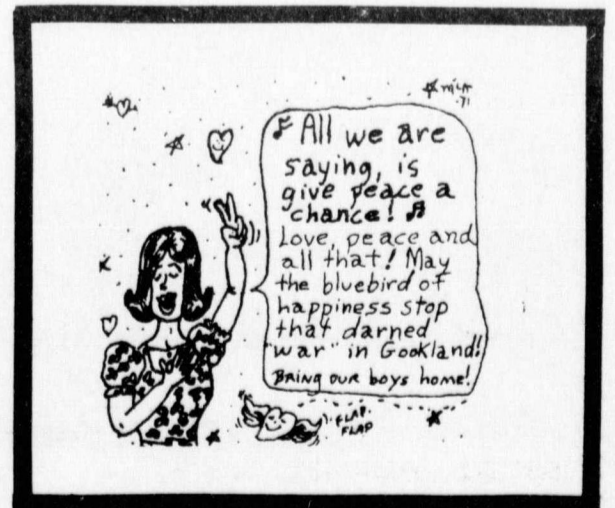 MiLA
71
All we are
saying, is
give peace a
chance!
Love, peace and
all that! May
the bluebird of
happiness stop
that darned
"war" in Gookland!
BRING OUR boys home!
FLAP
FLAP